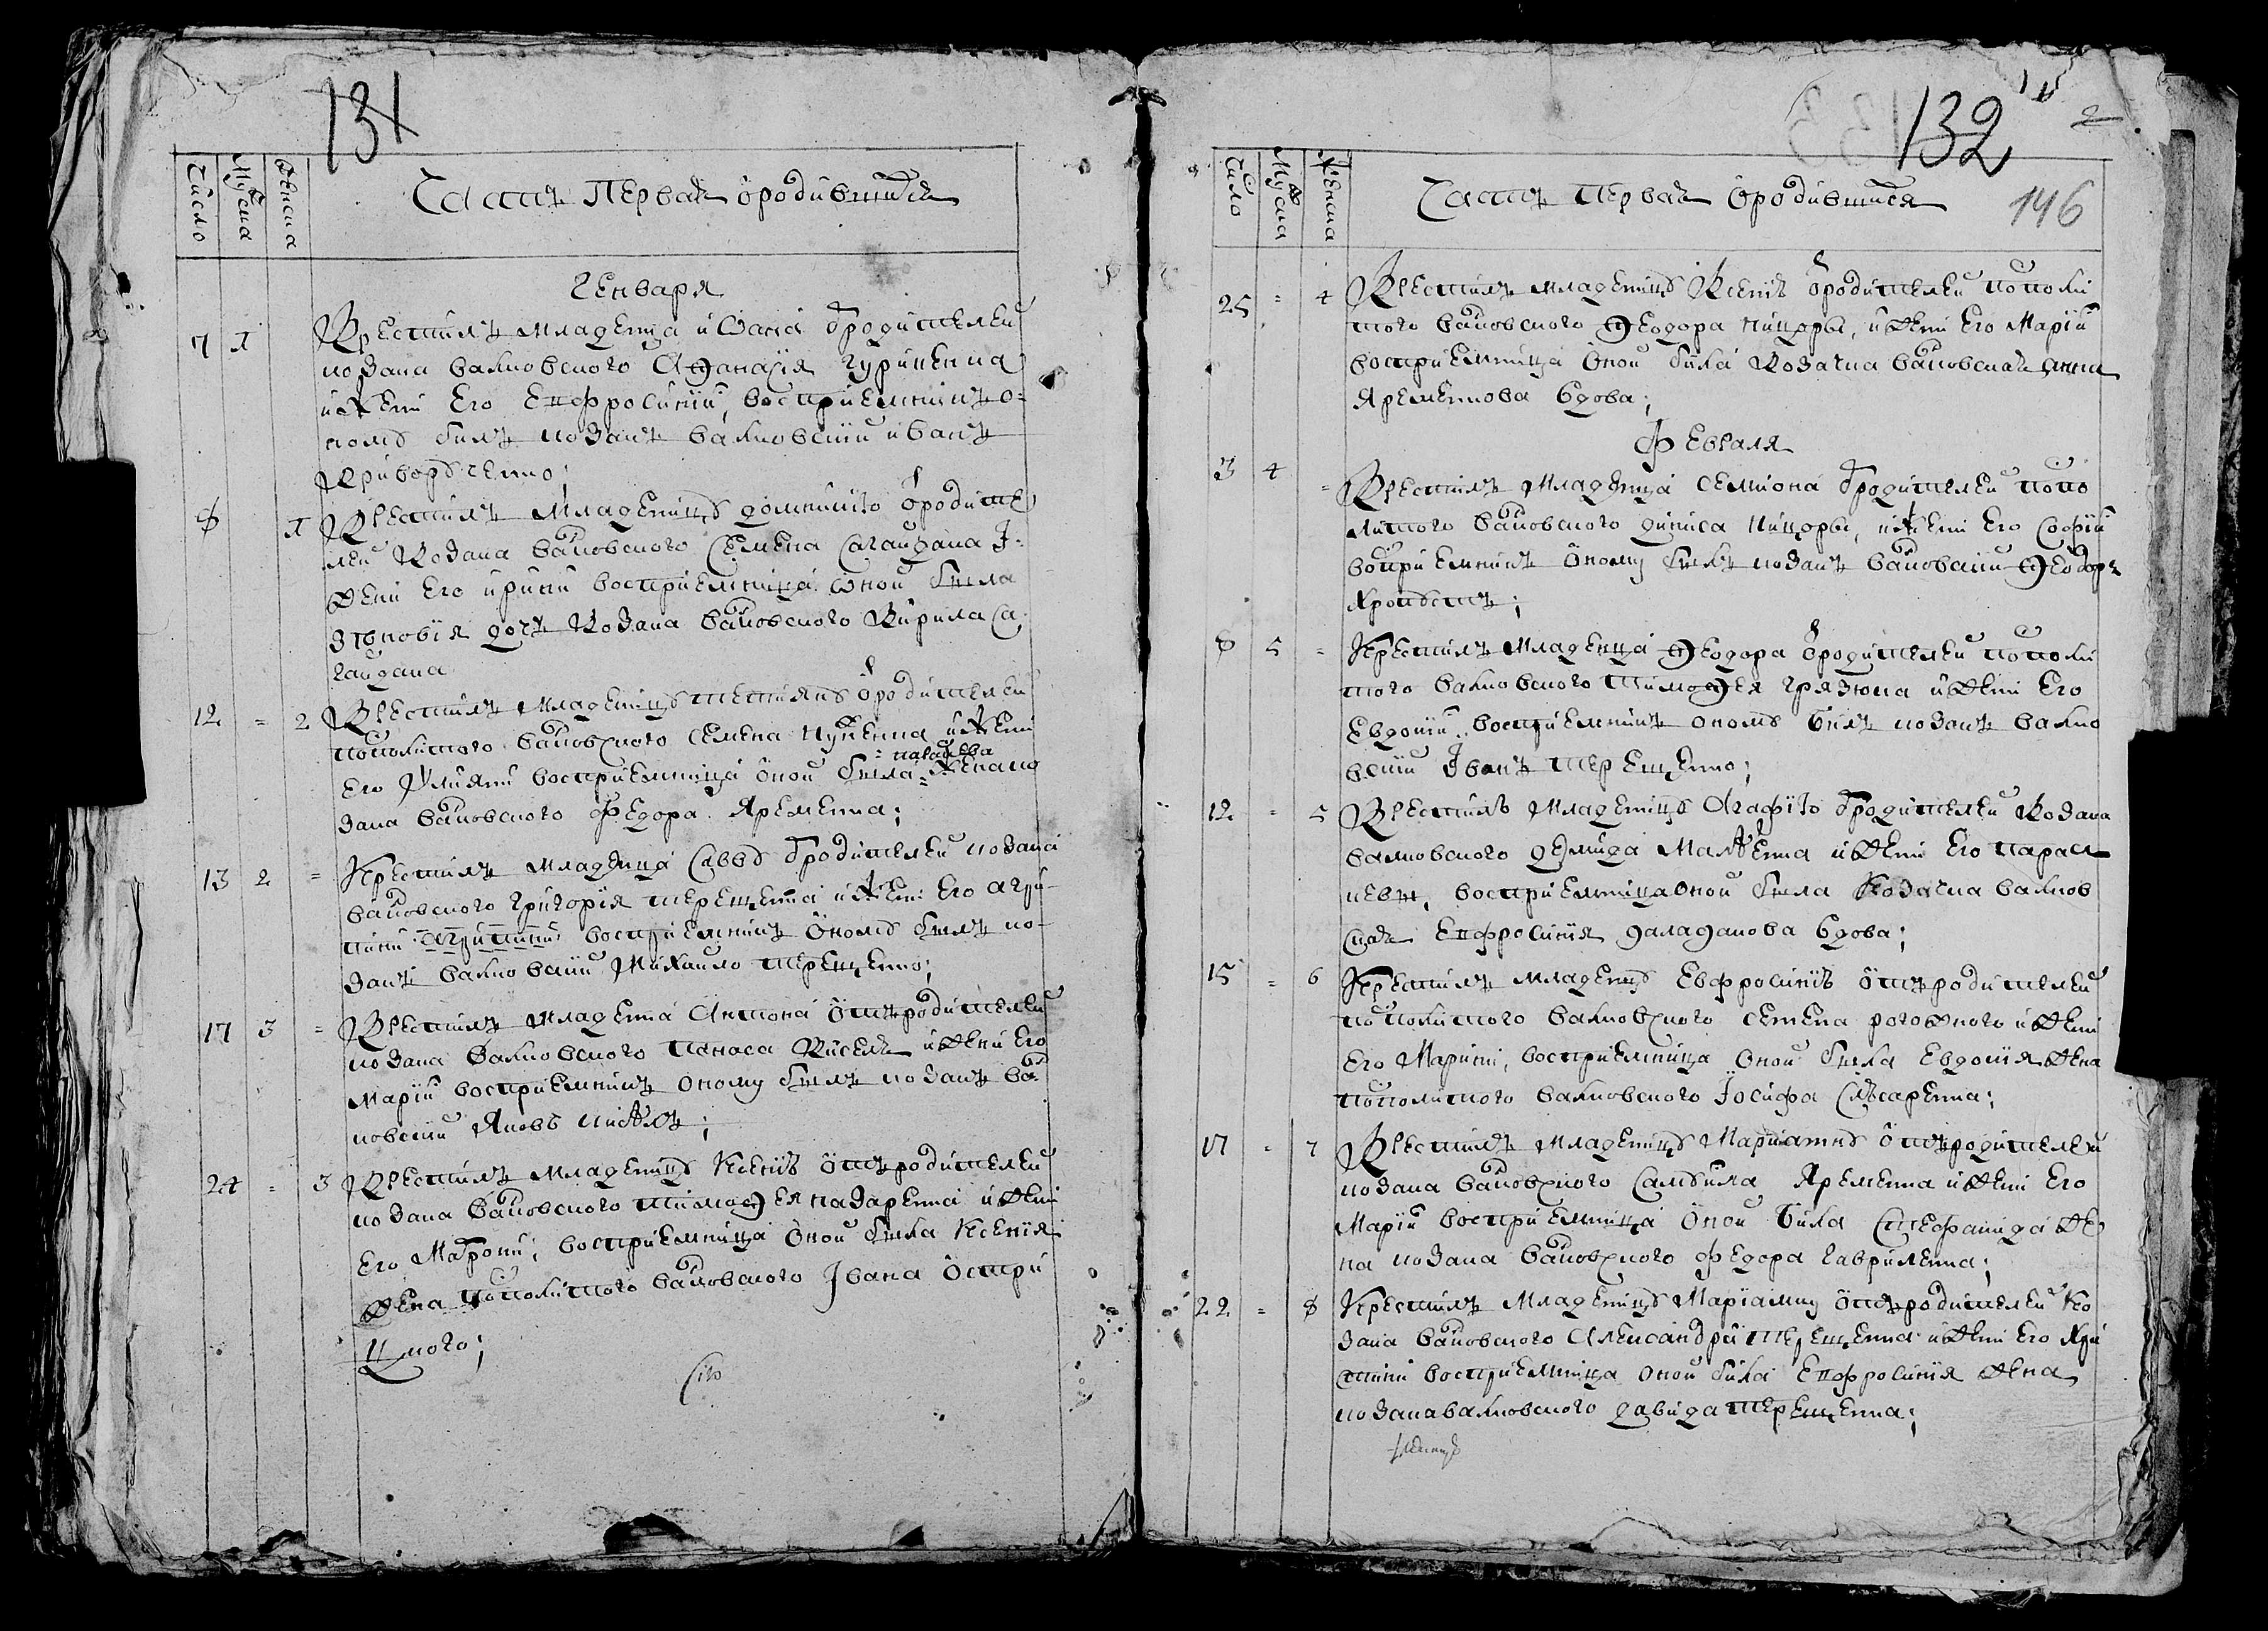 131
Число
Мужеска
Женска
Часть Первая ѡродившихся
Генваря
7 1
Крестилъ младенца иѡана ѿродителей
козака валковского Аѳанасія гуриненка
ижени его Епфросиніи, восприемникъ о-
номꙋ былъ козакъ валковскій иванъ
Криворꙋченко;
8 1
Крестилъ Младеницꙋ домникію ѿродите
лей козака валковского Семена Сагайдака І
жени его ирини восприемница ѡной была
Зѣновія дочъ козака валковского Кирила Са
гайдака
12 = 2
Крестилъ Младеницꙋ тетянꙋ ѿродителей
посполитого валковского семена куценка ижени
= палажка
его Улияни восприемница ѡной была = жена ко
зака валковского Федора Яременка;
13 2 =
Крестилъ младенца Саввꙋ ѿродителей козака
валковского григорія терещенка ижени его агри-
пини агрипини восприемникъ ѡномꙋ былъ ко-
закъ валковскій Михайло терещенко;
17 3 =
Крестилъ младенца Антона ѿтъродителей
козака валковского панаса Киселя ижени его
маріи восприемникъ оному былъ козакъ вал
ковскій Яковъ кисѣль;
24 = 3
Крестилъ младеницꙋ Ксенію ѿтъродителей
козака валковского тимоѳея назаренка ижени
его Матрони; восприемница ѡной была Ксенія
жена посполитого валковского Івана ѡстри
цкого;
132
2
146
Число
Мужеска
Женска
Часть Первая ѡродившихся
25 = 4
Крестилъ младеницꙋ Ксенію ѿродителей посполи
того валковского Ѳеодора кицоры, ижени его Маріи
восприемница ѡной била козачка валковская анна
Яременкова вдова;
Февраля
3 4 =
Крестилъ Младенца семиона ѿродителей поспо
литого валковского диниса кицоры, ижени его Софіи
восприемникъ ѡному былъ козакъ валковскій Ѳеодоръ
8 5 =
Крестилъ младенца Ѳеодора ѿродителей посполи
того валковского тимоѳея грязюка ижени его
Евдокіи восприемникъ ономꙋ билъ козакъ валко
вскій Іванъ терещенко;
12 = 5
Крестилъ Младеницꙋ Агафію ѿродителей козака
валковского демида Малженка ижени его параск
кевы, восприемница оной была козачка валков
ская Епфросинія даладанова вдова;
15 = 6
Крестилъ младеницꙋ Евфросинію ѿтъродителей
посполитого валковского семена рогожного ижени
его Марини, восприемница оной была Евдокія жена
посполитого валковского Іосифа Слѣсаренка;
17 = 7
Крестилъ младеницꙋ Мариамнꙋ ѿтъродителей
козака валковского Самꙋила Яременка ижени его
Маріи восприемница ѡной била Стефанида же
на козака валковского Федора гавриленка;
22 = 8
Крестилъ Младеницꙋ Маріамну ѿтъродителей ко
зака валковского Александра терещенка ижени его Хри
стини восприемница оной била Епфросинія жена
козака валковского давида терещенка;